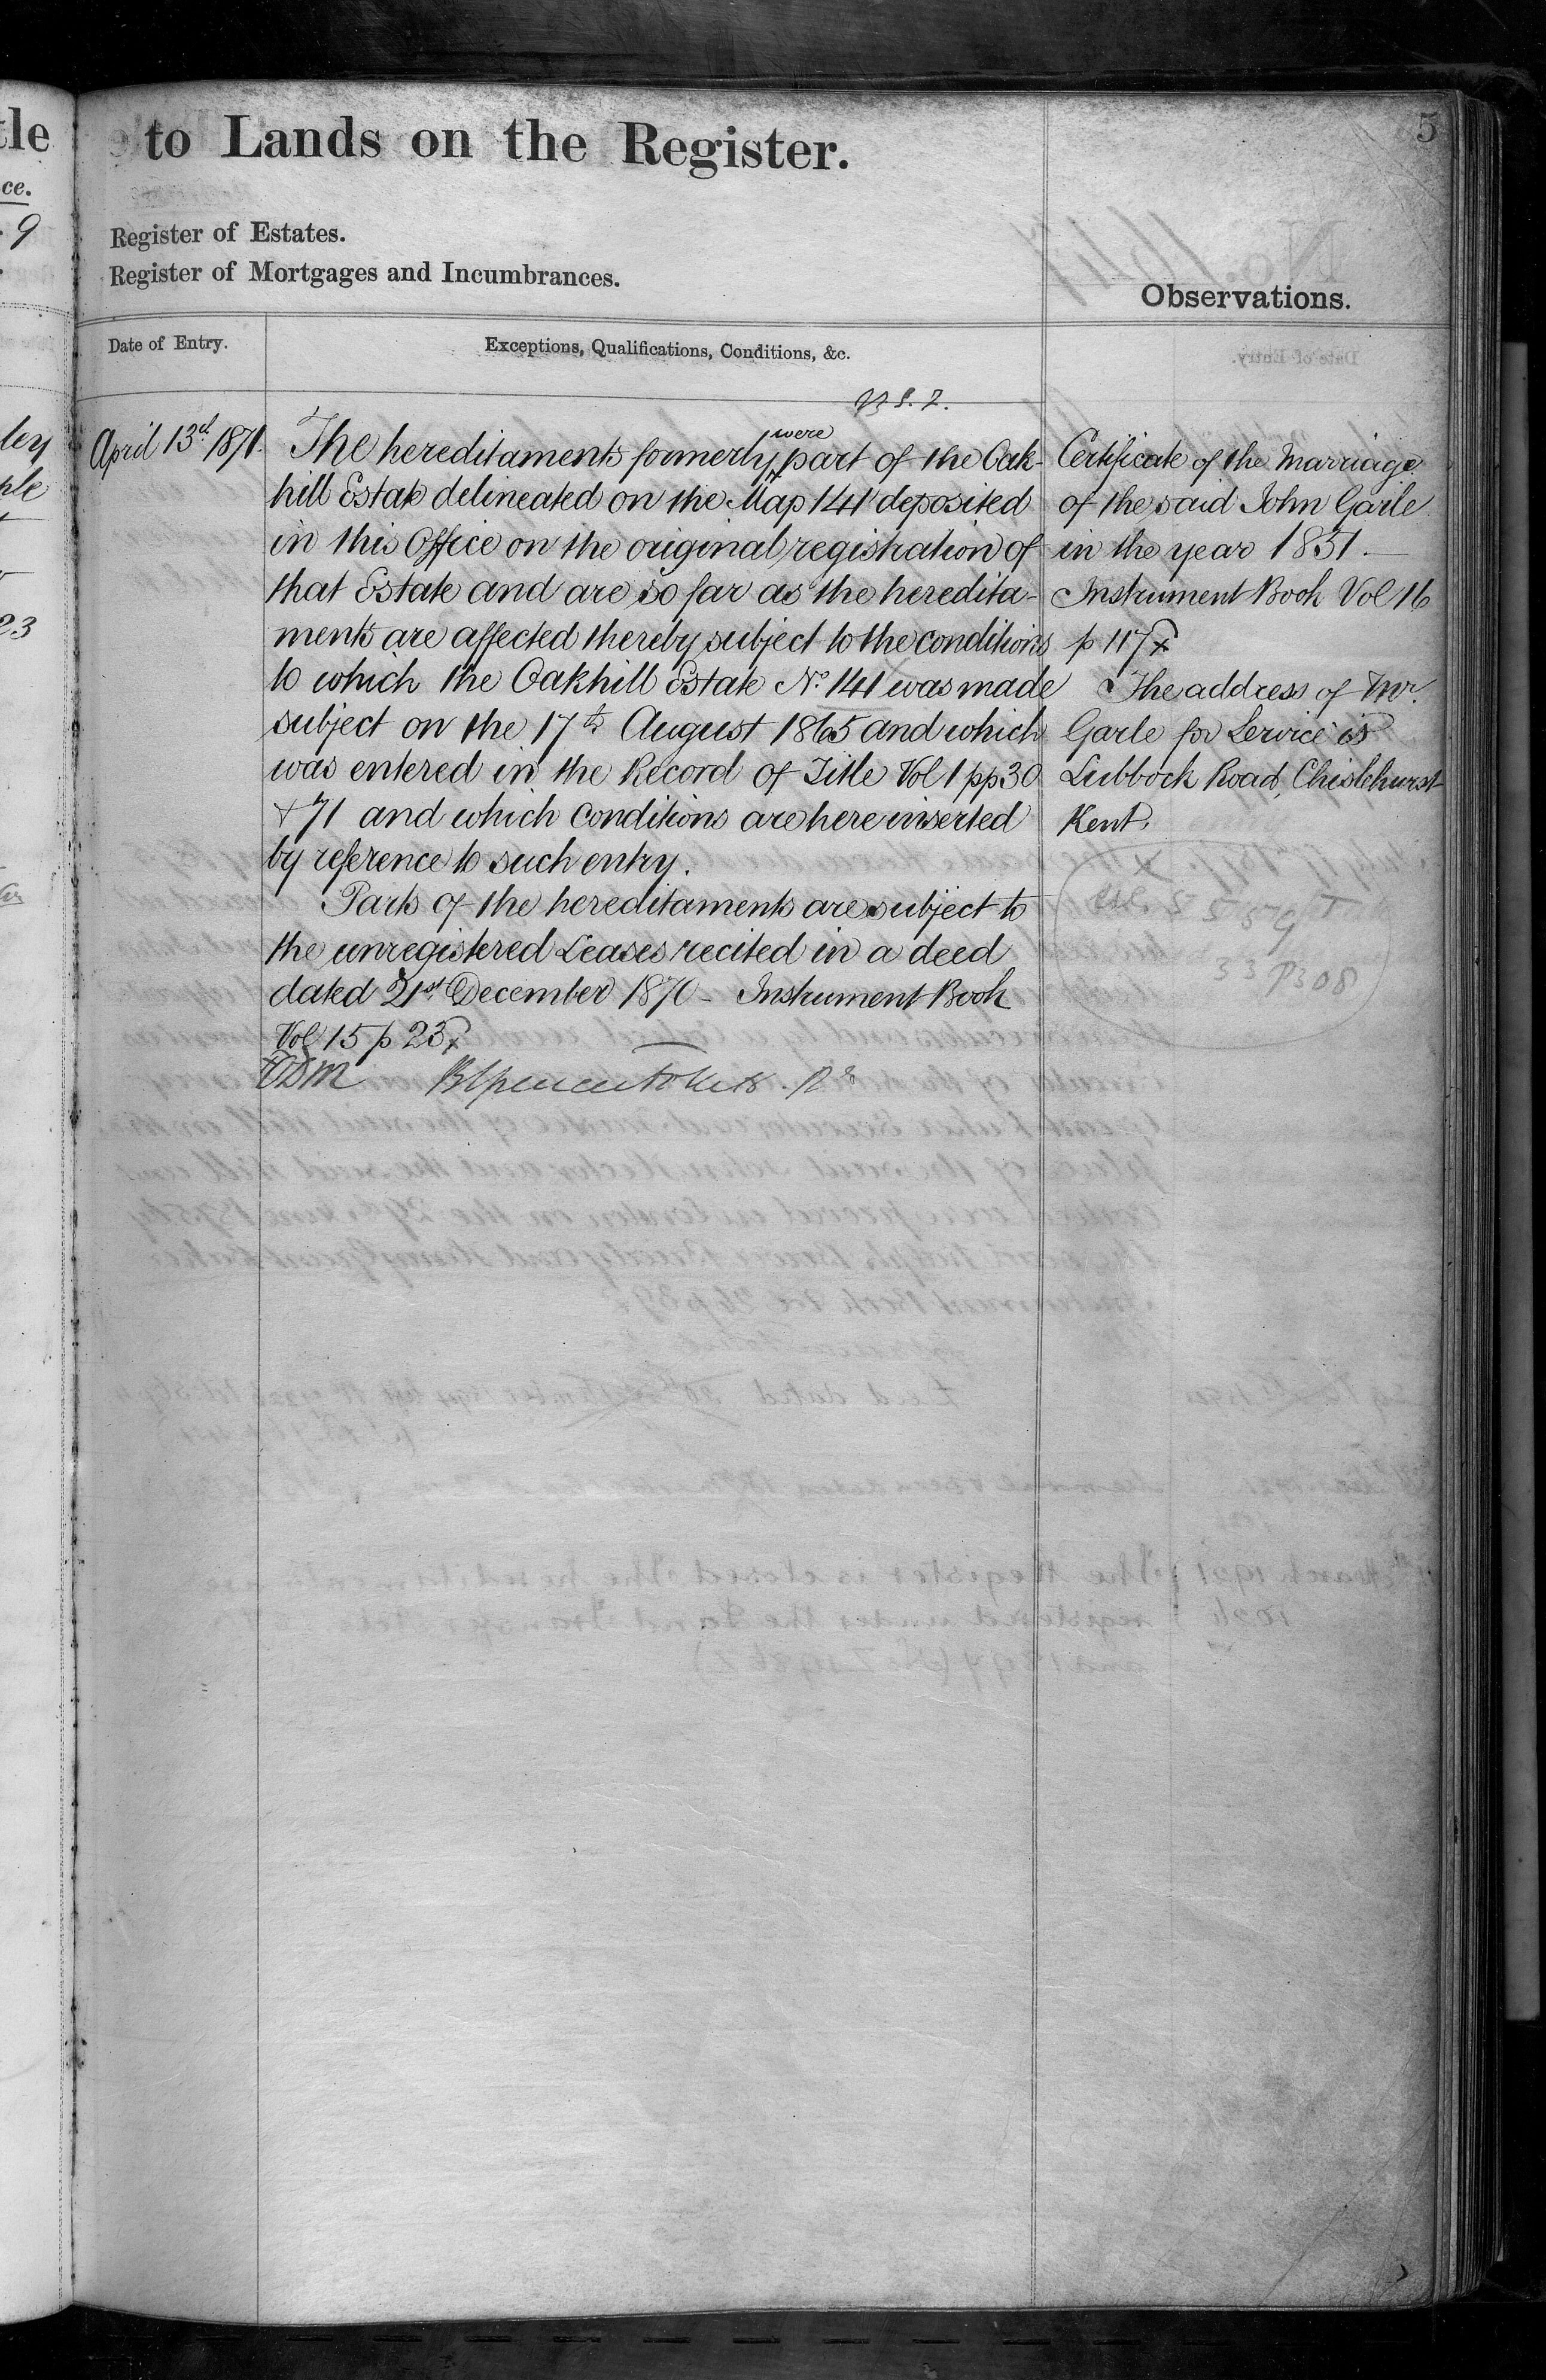 to Lands on the Register.
5
Register of Estates.
Register of Mortgages and Incumbrances.
Observations.
Date of Entry.
Exceptions, Qualifications, Conditions, &c.
April 13th 1871.
were
The hereditaments formerly part of the Oak-
hill Estate delineated on the Map 141 deposited
in this Office on the original registration of
that Estate and are so far as the heredita-
ments are affected thereby subject to the conditions
to which the Oakhill Estate No. 141 was made
subject on the 17th August 1865 and which
was entered in the Record of Title Vol 1 pp 30
+ 71 and which conditions are here inserted
by reference to such entry.
Parts of the hereditaments are subject to
the unregistered Leases recited in a deed
dated 21st December 1870 - Instrument Book
Vol 15 p 23
Certificate of the Marriage
of the said John Garle
in the year 1851.
Instrument Book Vol 16
p 117
The address of Mr.
Garle for Service is
Lubbock Road, Chislehurst
Kent.
33 P308